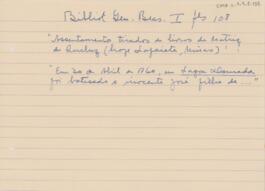 Bibliot Gen. Bras. I fls 108
"Assentamento tirados de livros da Matriz
de Queluz (hoje Lafaiete, Minas)"
"Em 20 de Abril de 1760, em Lagoa Dourada
foi batisado o inocente José filho de ..."